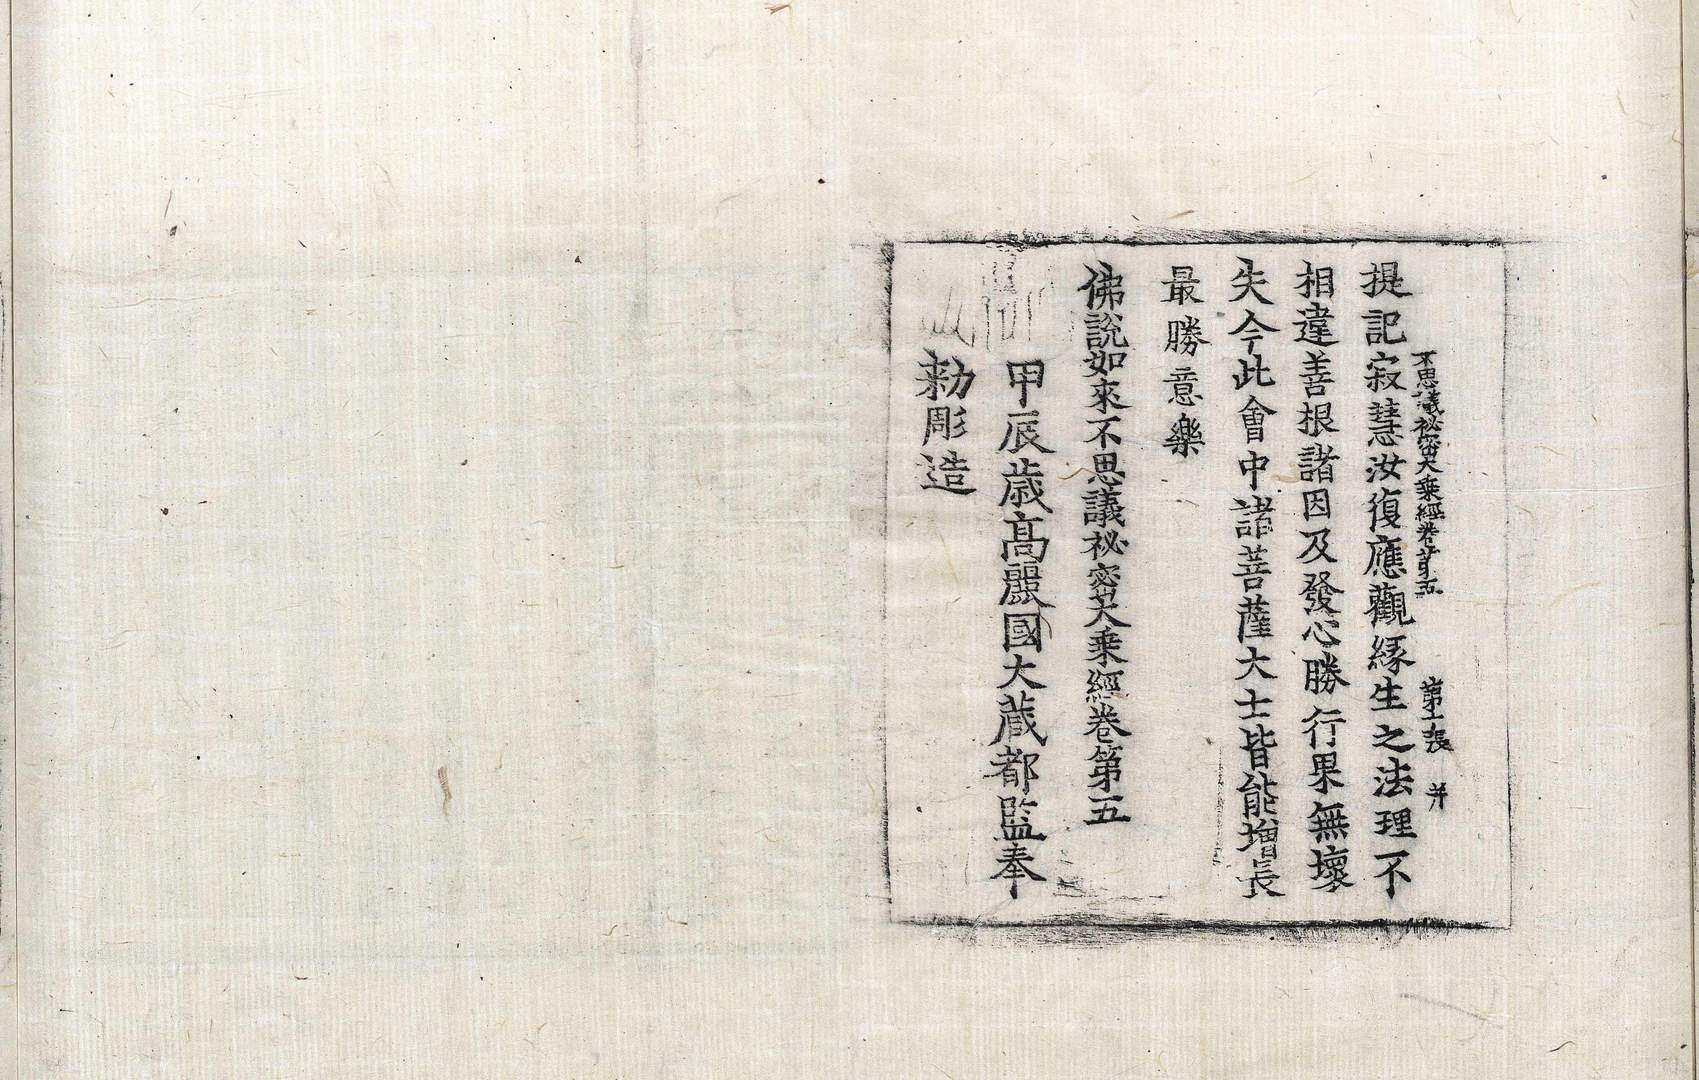 不思議祕密大乘經卷苐五 第十張 并
提記寂慧汝復應觀緣生之法理不
相違善根諸因及發心勝行果無壞
失今此會中諸菩薩大士皆能增長
最勝意樂
佛說如來不思議祕密大乘經卷第五
甲辰歲高麗國大藏都監奉
勅彫造